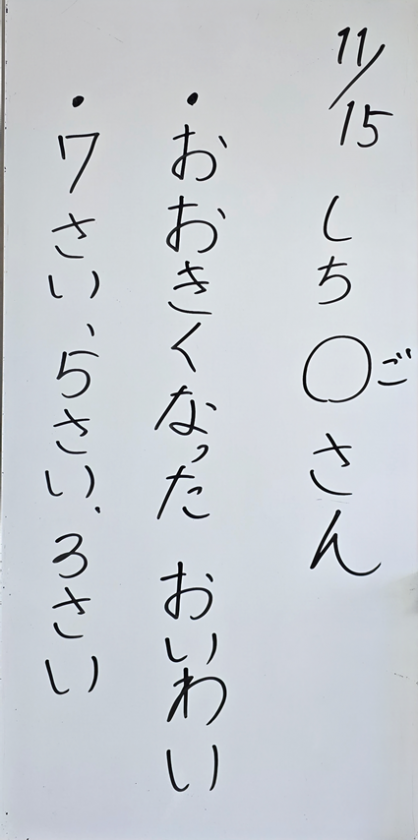 11/15 しち〇ごさん
・おおきくなった おいわい
・7さい、5さい、3さい